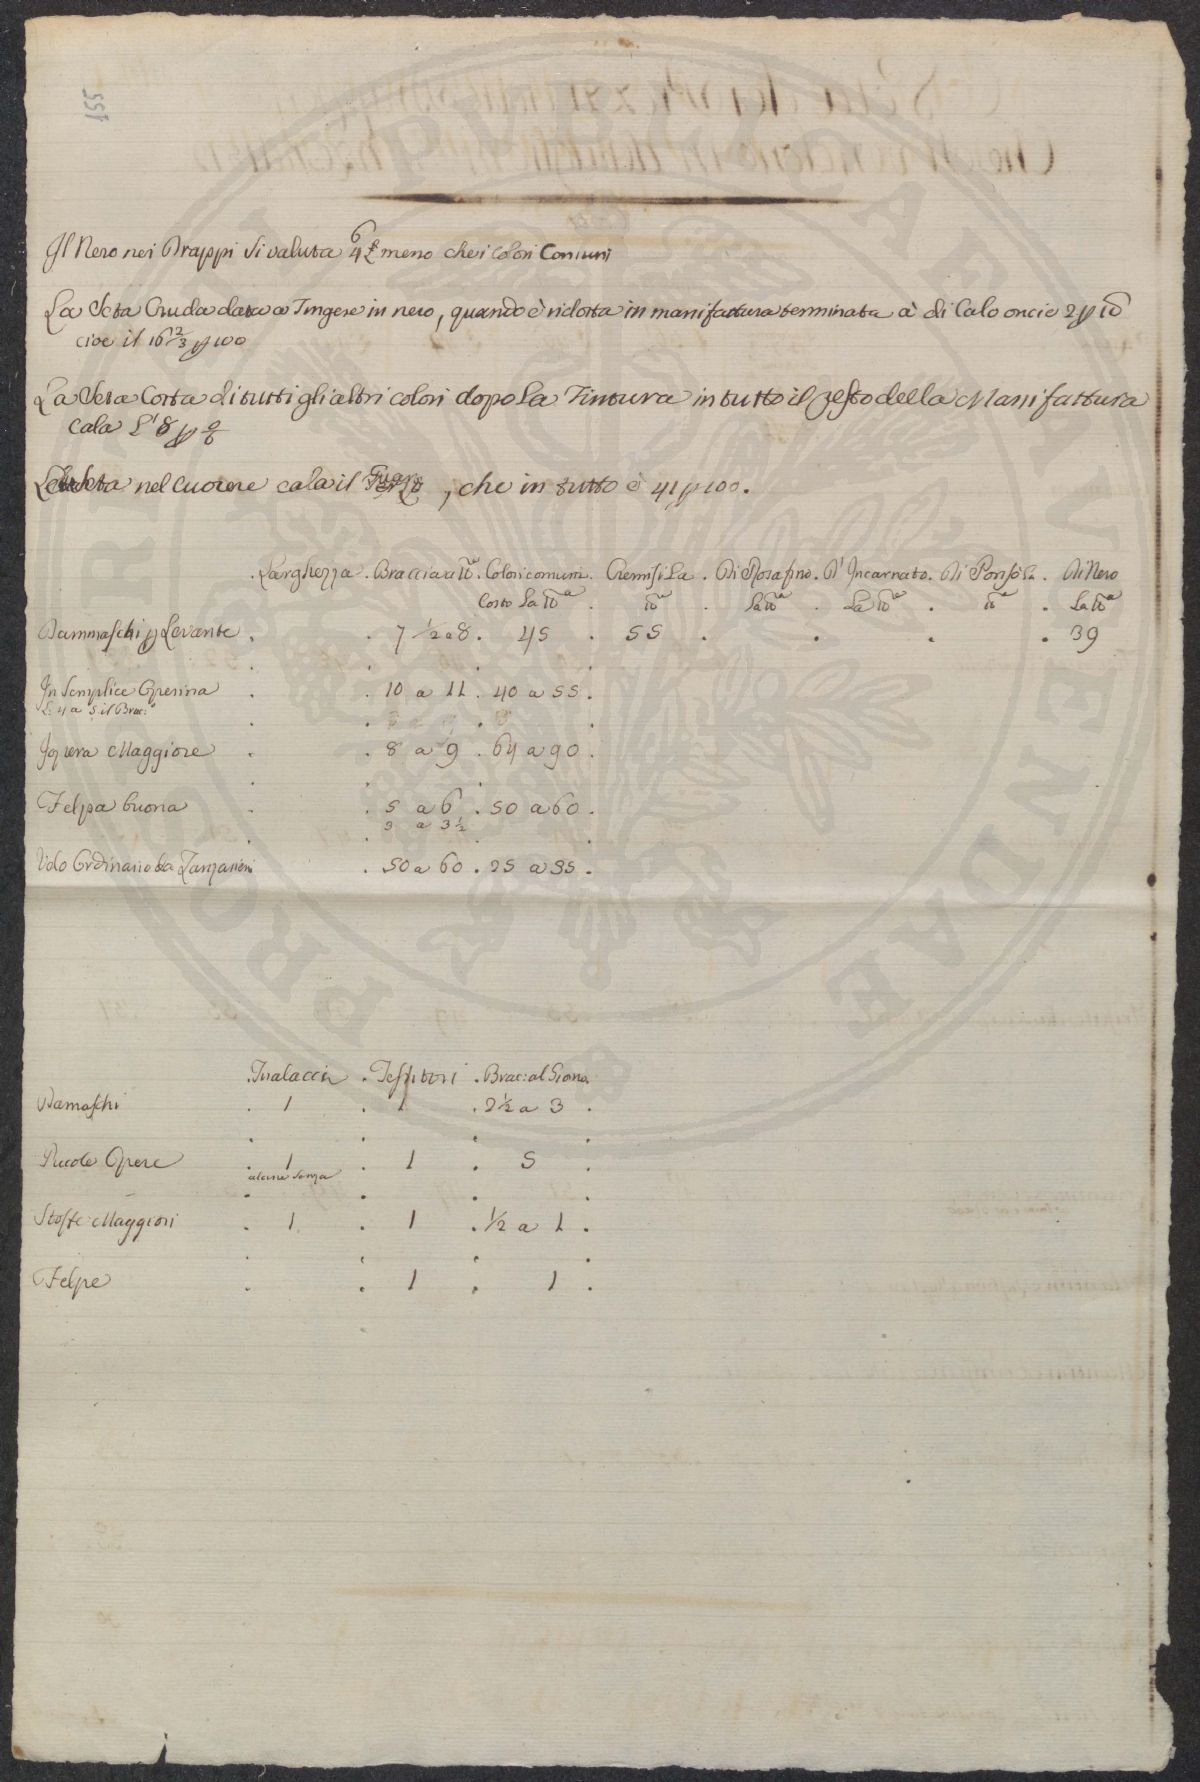 155
Il Nero nei Drappi si valuta 6 4 £ meno che i Colori Comuni
La Seta Cruda data a Tingere in nero, quando è ridotta in manifattura terminata à di Calo oncie 2 p lb
cioe il 16 2/3 p 100
La Seta Cotta di tutti gli altri colori dopo la Tintura in tutto il resto della Manifattura
cala L'8 p %
nel Cuocere cala il , che in tutto è 41 p 100.
. Larghezza . Braccia a lb.a . Colori comuni . Cremisi La . Di Rosa fino . D'Incarnato . Di Ponsò La . Di Nero
Costo La lb.a . lb.a . La lb.a . La lb.a . lb.a . La lb.a
Dammaschi p Levante . . 7 1/2 a 8 . 45 . 55 . . . . 39
In Semplice Operina . . 10 a 11 . 40 a 55 .
L: 4 a 5 il Brac:o
In opera Maggiore . . 8 a 9 . 64 a 90 .
Felpa buona . . 5 a 6 . 50 a 60 .
3 a 3 1/2
Velo Ordinario da Zanzarieri . 50 a 60 . 25 a 35 .
. Tiralacci . Tessitori . Brac: al Giorno
Damaschi . 1 . 1 . 2 1/2 a 3 .
Piccole Opere . 1 . 1 . 5 .
alcune senza
Stoffe Maggiori . 1 . 1 . 1/2 a 1 .
Felpe . . 1 . 1 .